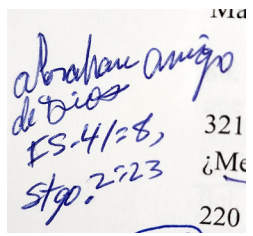 Ma
abraham amigo
de Dios
IS-41=8,
Stgo. 2=23
321
¿Me
220